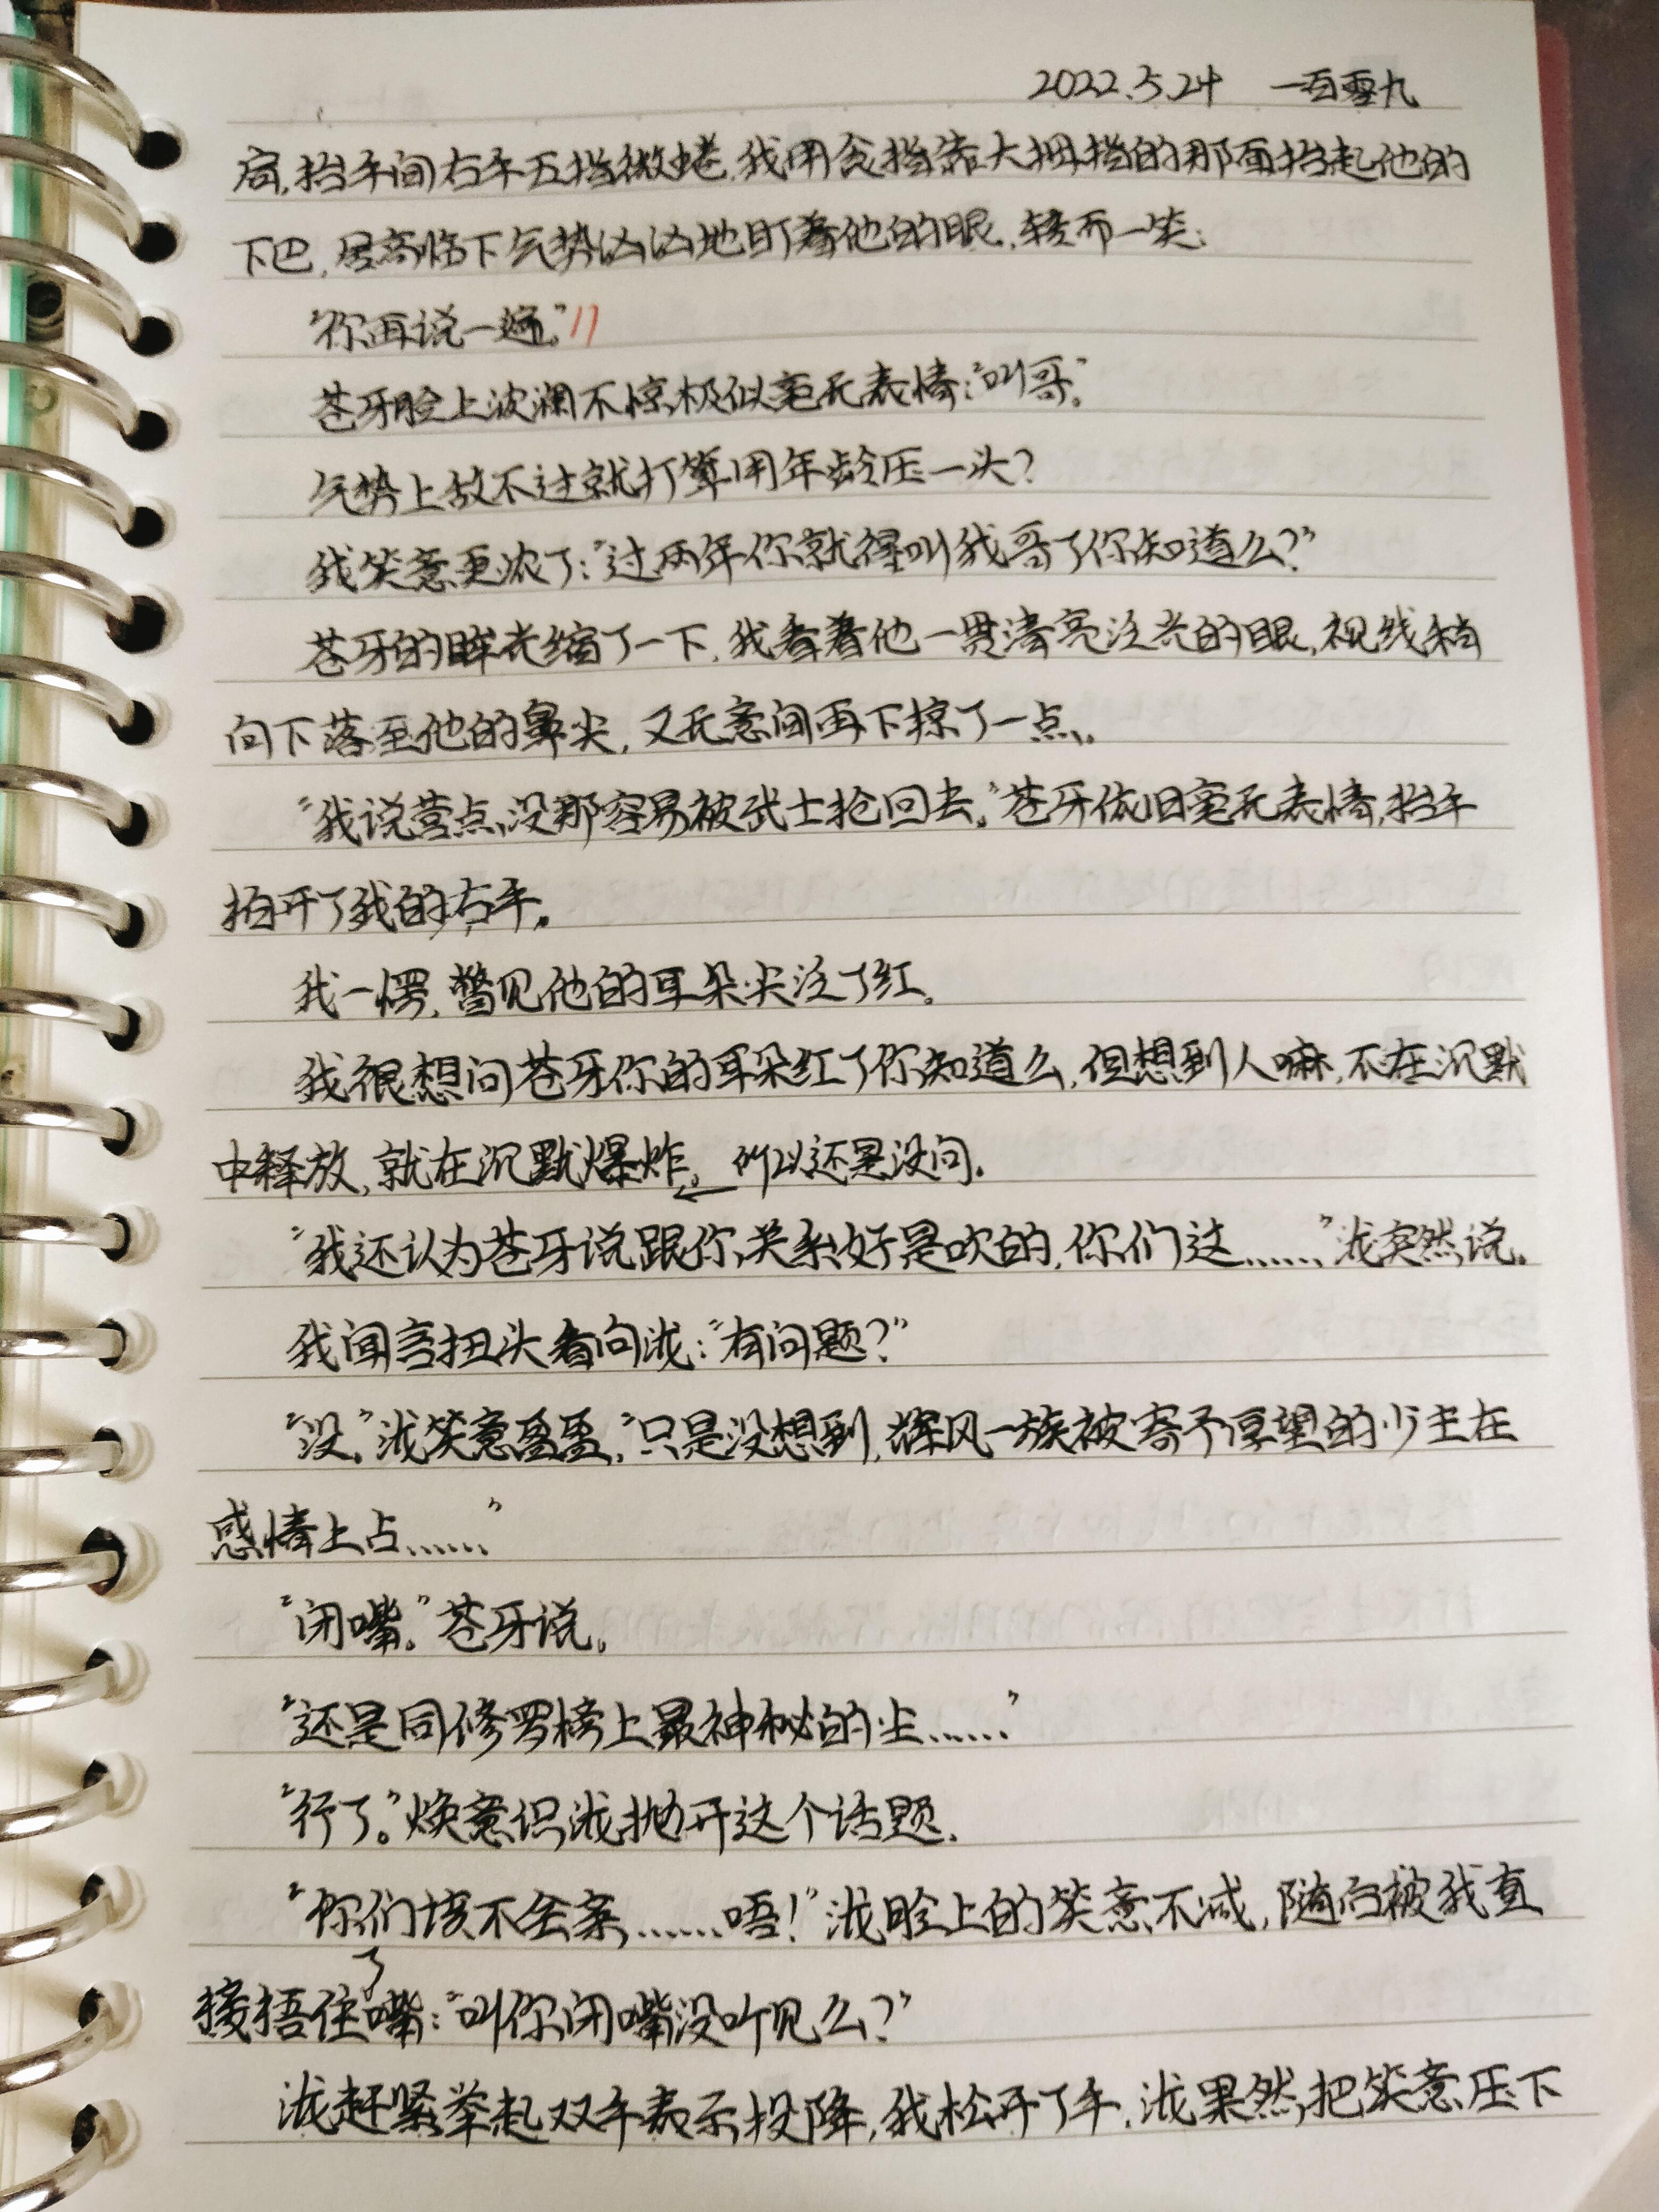 2022.5.24 一百零九
肩,抬手间右手五指微蜷,我用食指靠大拇指的那面抬起他的
下巴,居高临下气势汹汹地盯着他的眼,转而一笑:
“你再说一遍。”
苍牙脸上波澜不惊极似毫无表情:“叫哥。”
气势上敌不过就打算用年龄压一头?
我笑意更浓了:“过两年你就得叫我哥了你知道么?”
苍牙的眸光缩了一下,我看着他一贯清亮泛光的眼,视线稍
向下落至他的鼻尖,又无意间再下掠了一点。
“我说营点没那容易被武士抢回去。”苍牙依旧毫无表情,抬手
拍开了我的右手。
我一愣,瞥见他的耳朵尖泛了红。
我很想问苍牙你的耳朵红了你知道么,但想到人嘛,不在沉默
中释放,就在沉默爆炸。所以还是没问。
“我还认为苍牙说跟你关系好是吹的,你们这……”泷突然说。
我闻言扭头看向泷:“有问题?”
“没。”泷笑意盈盈,“只是没想到,辉风一族被寄予厚望的少主在
感情上占……”
“闭嘴。”苍牙说。
“还是同修罗榜上最神秘的尘……”
“行了。”焕意识泷抛开这个话题。
“你们该不会亲……唔!”泷脸上的笑意不减,随后被我直
接捂住了嘴:“叫你闭嘴没听见么?”
泷赶紧举起双手表示投降,我松开了手,泷果然把笑意压下